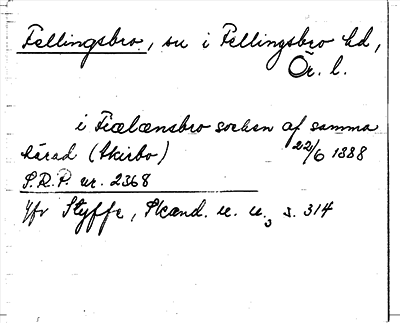 Fellingsbro, sn i Fellingsbro hd,
Ör. l.
i Fiælænsbro sochen af samma
härad (Skirbo) 22/6 1388
S.R.P. nr. 2368
Jfr Styffe, Skand. u. u., s. 314